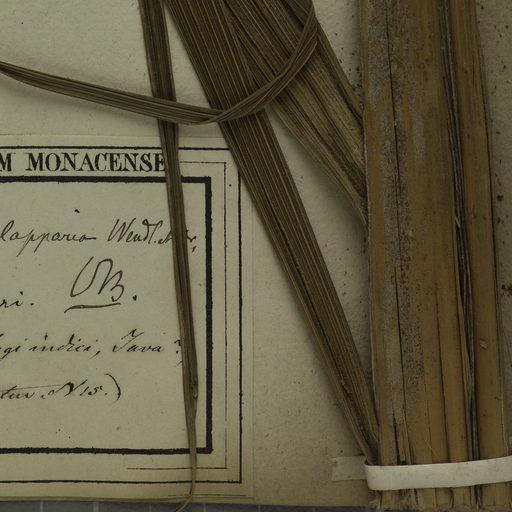 M MONACENSE
lapparia Wendl.
ri.
gi indici, Java ?,
tur. N 15.)